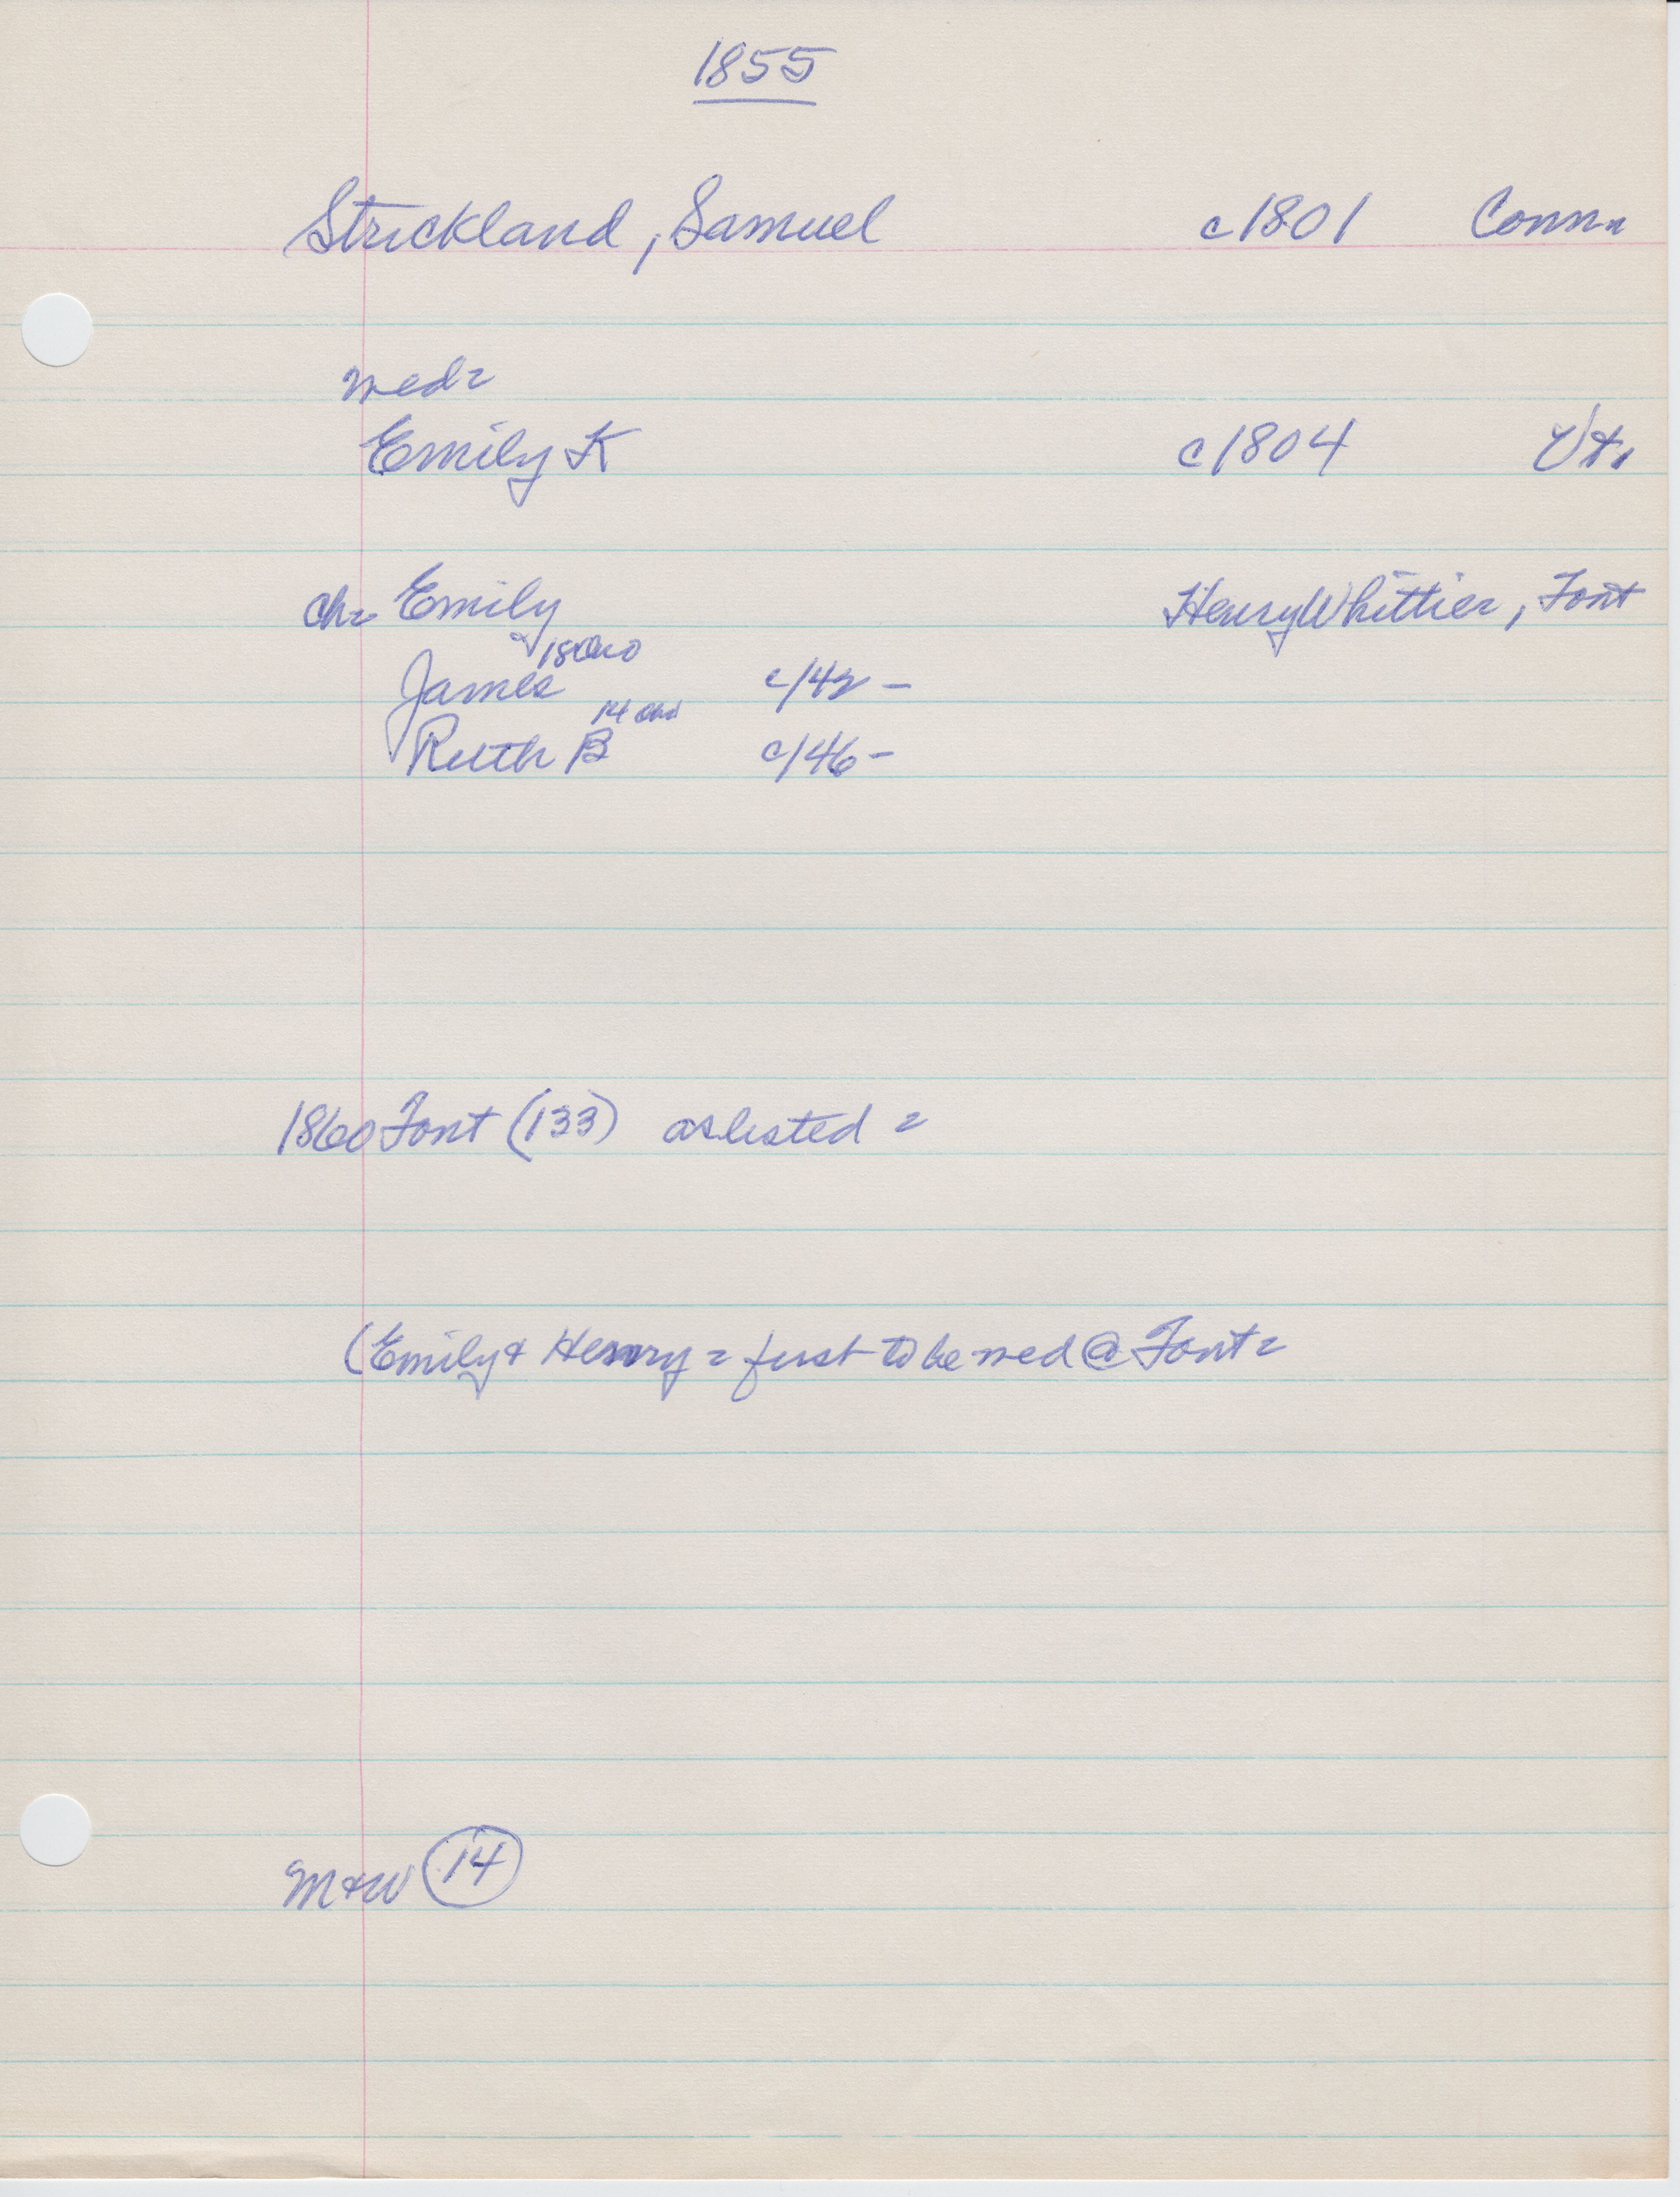 1855
Strickland, Samuel c1801 Conn.
med =
Emily K c1804 Vt.
ch = Emily Henry Whittier, Font
18 Ohio
James c/42 -
14 Ohio
Ruth B c/46 -
1860 Font (133) as listed =
(Emily & Henry = first to be med @ Font =
M+W 14